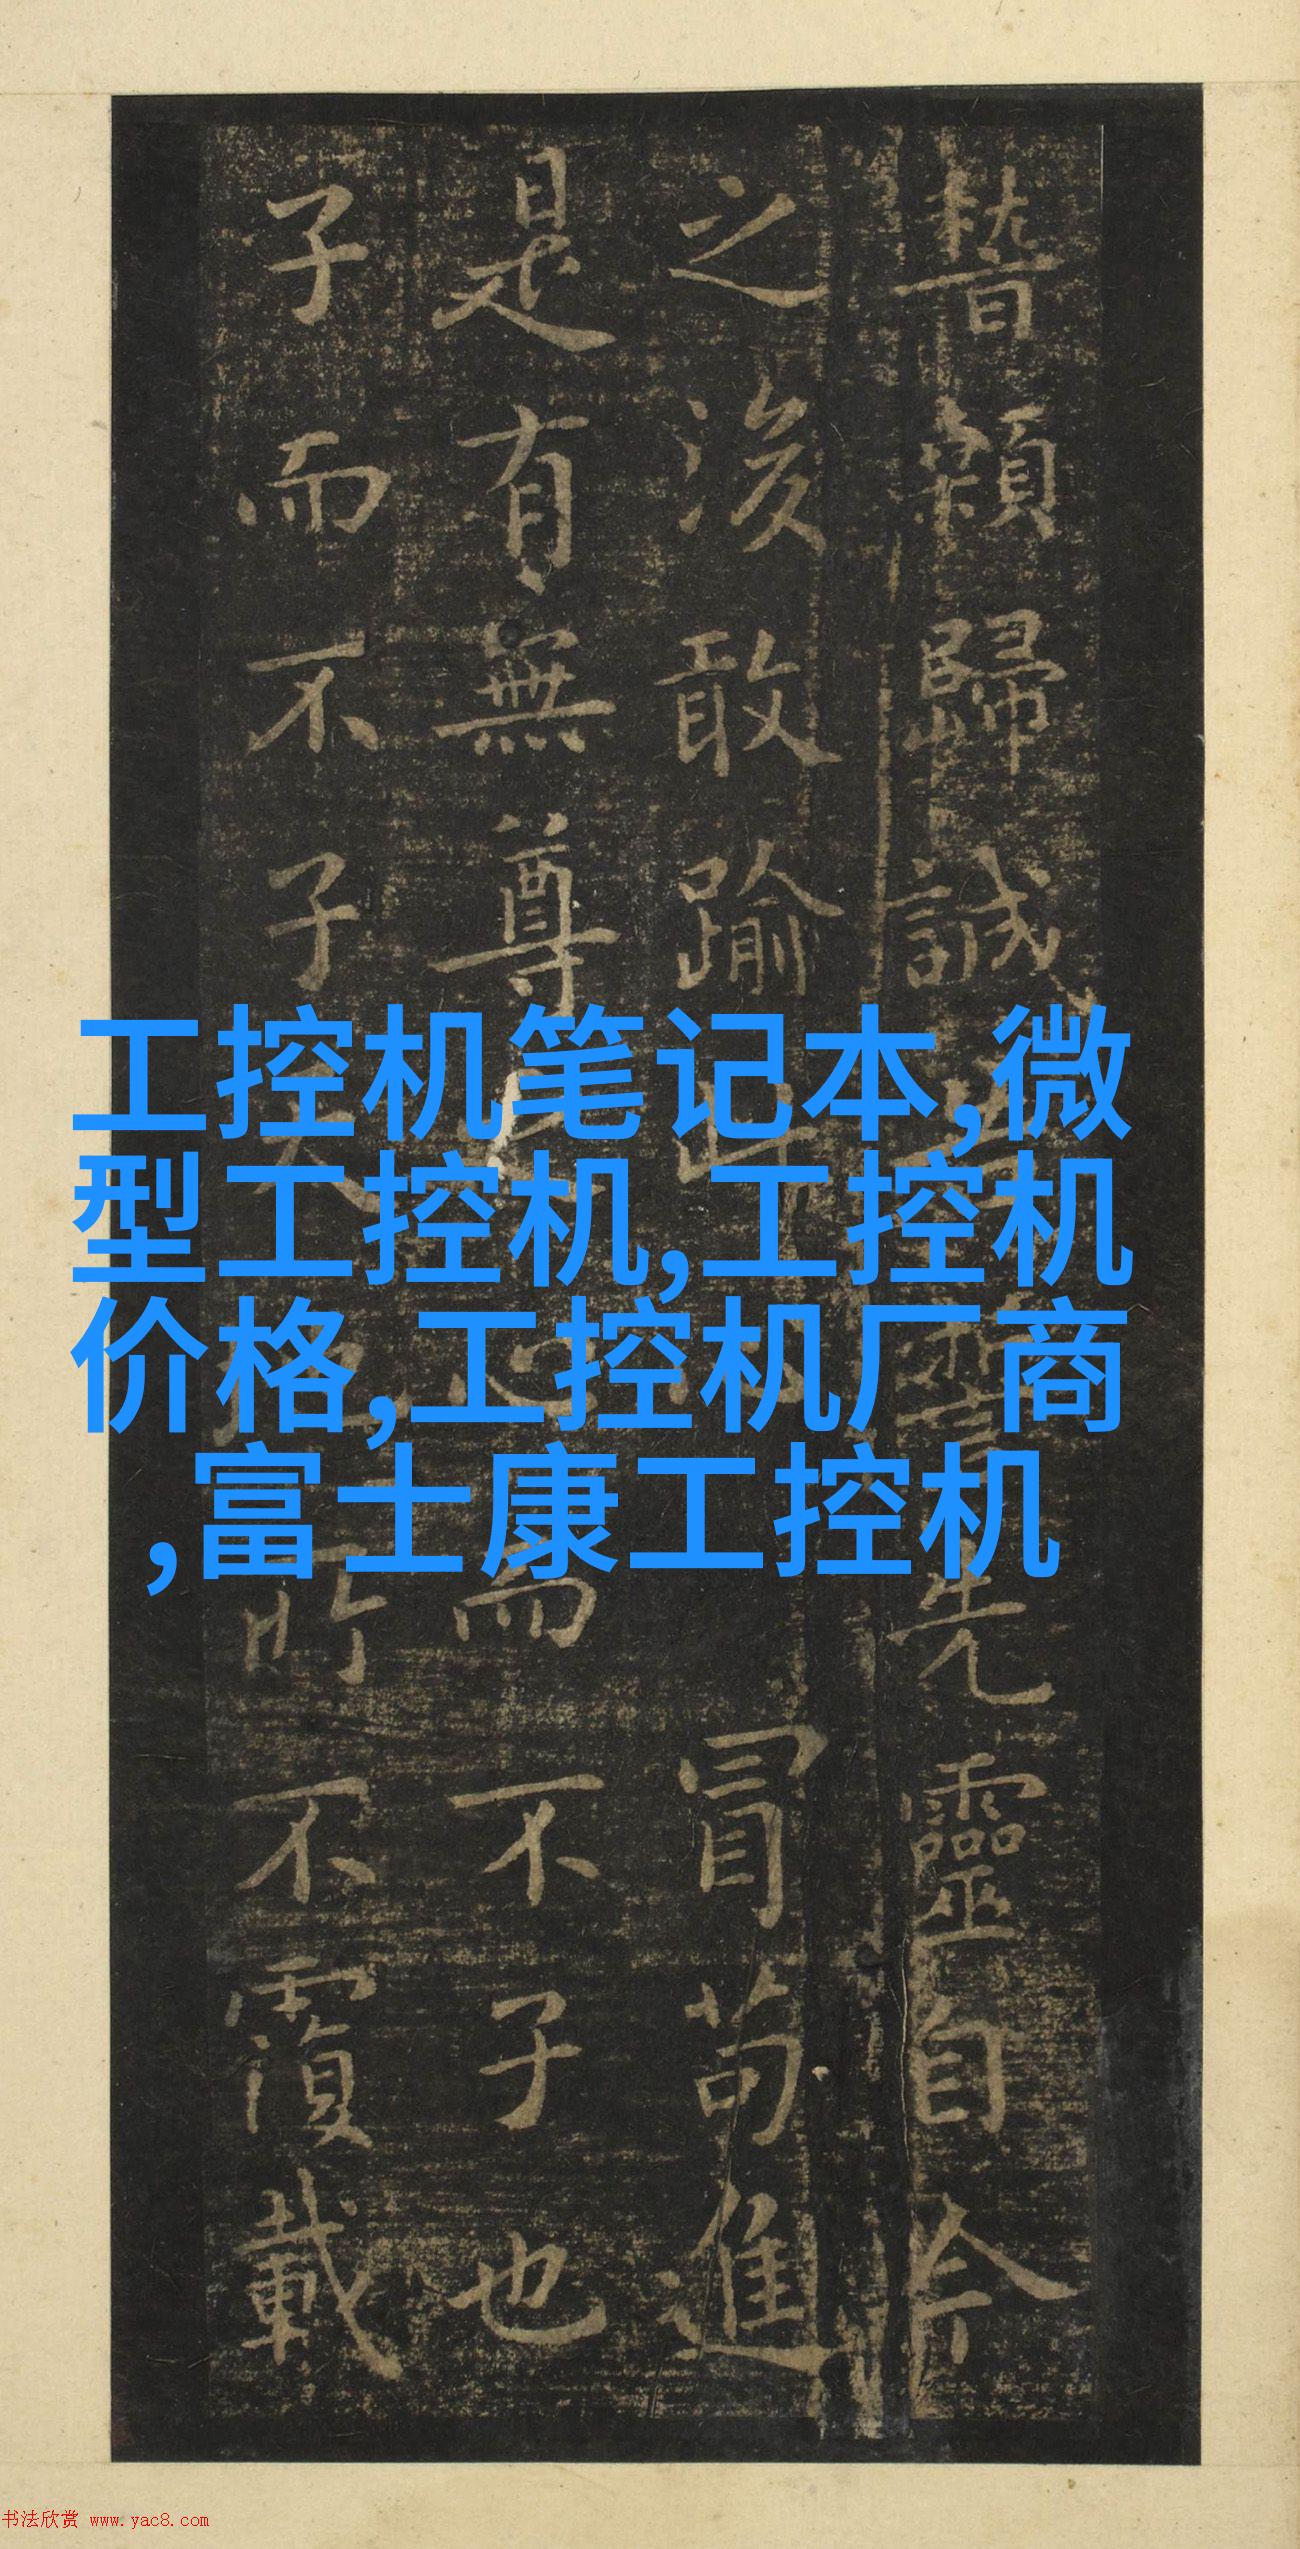 稽顙歸誠
先靈自今
之後敢踰
冒苟進
是有無尊
而不子也
子而不子
所不覆載
工控机笔记本,微
型工控机,工控机
价格,工控机厂商
,富士康工控机
书法欣赏 www.yac8.com